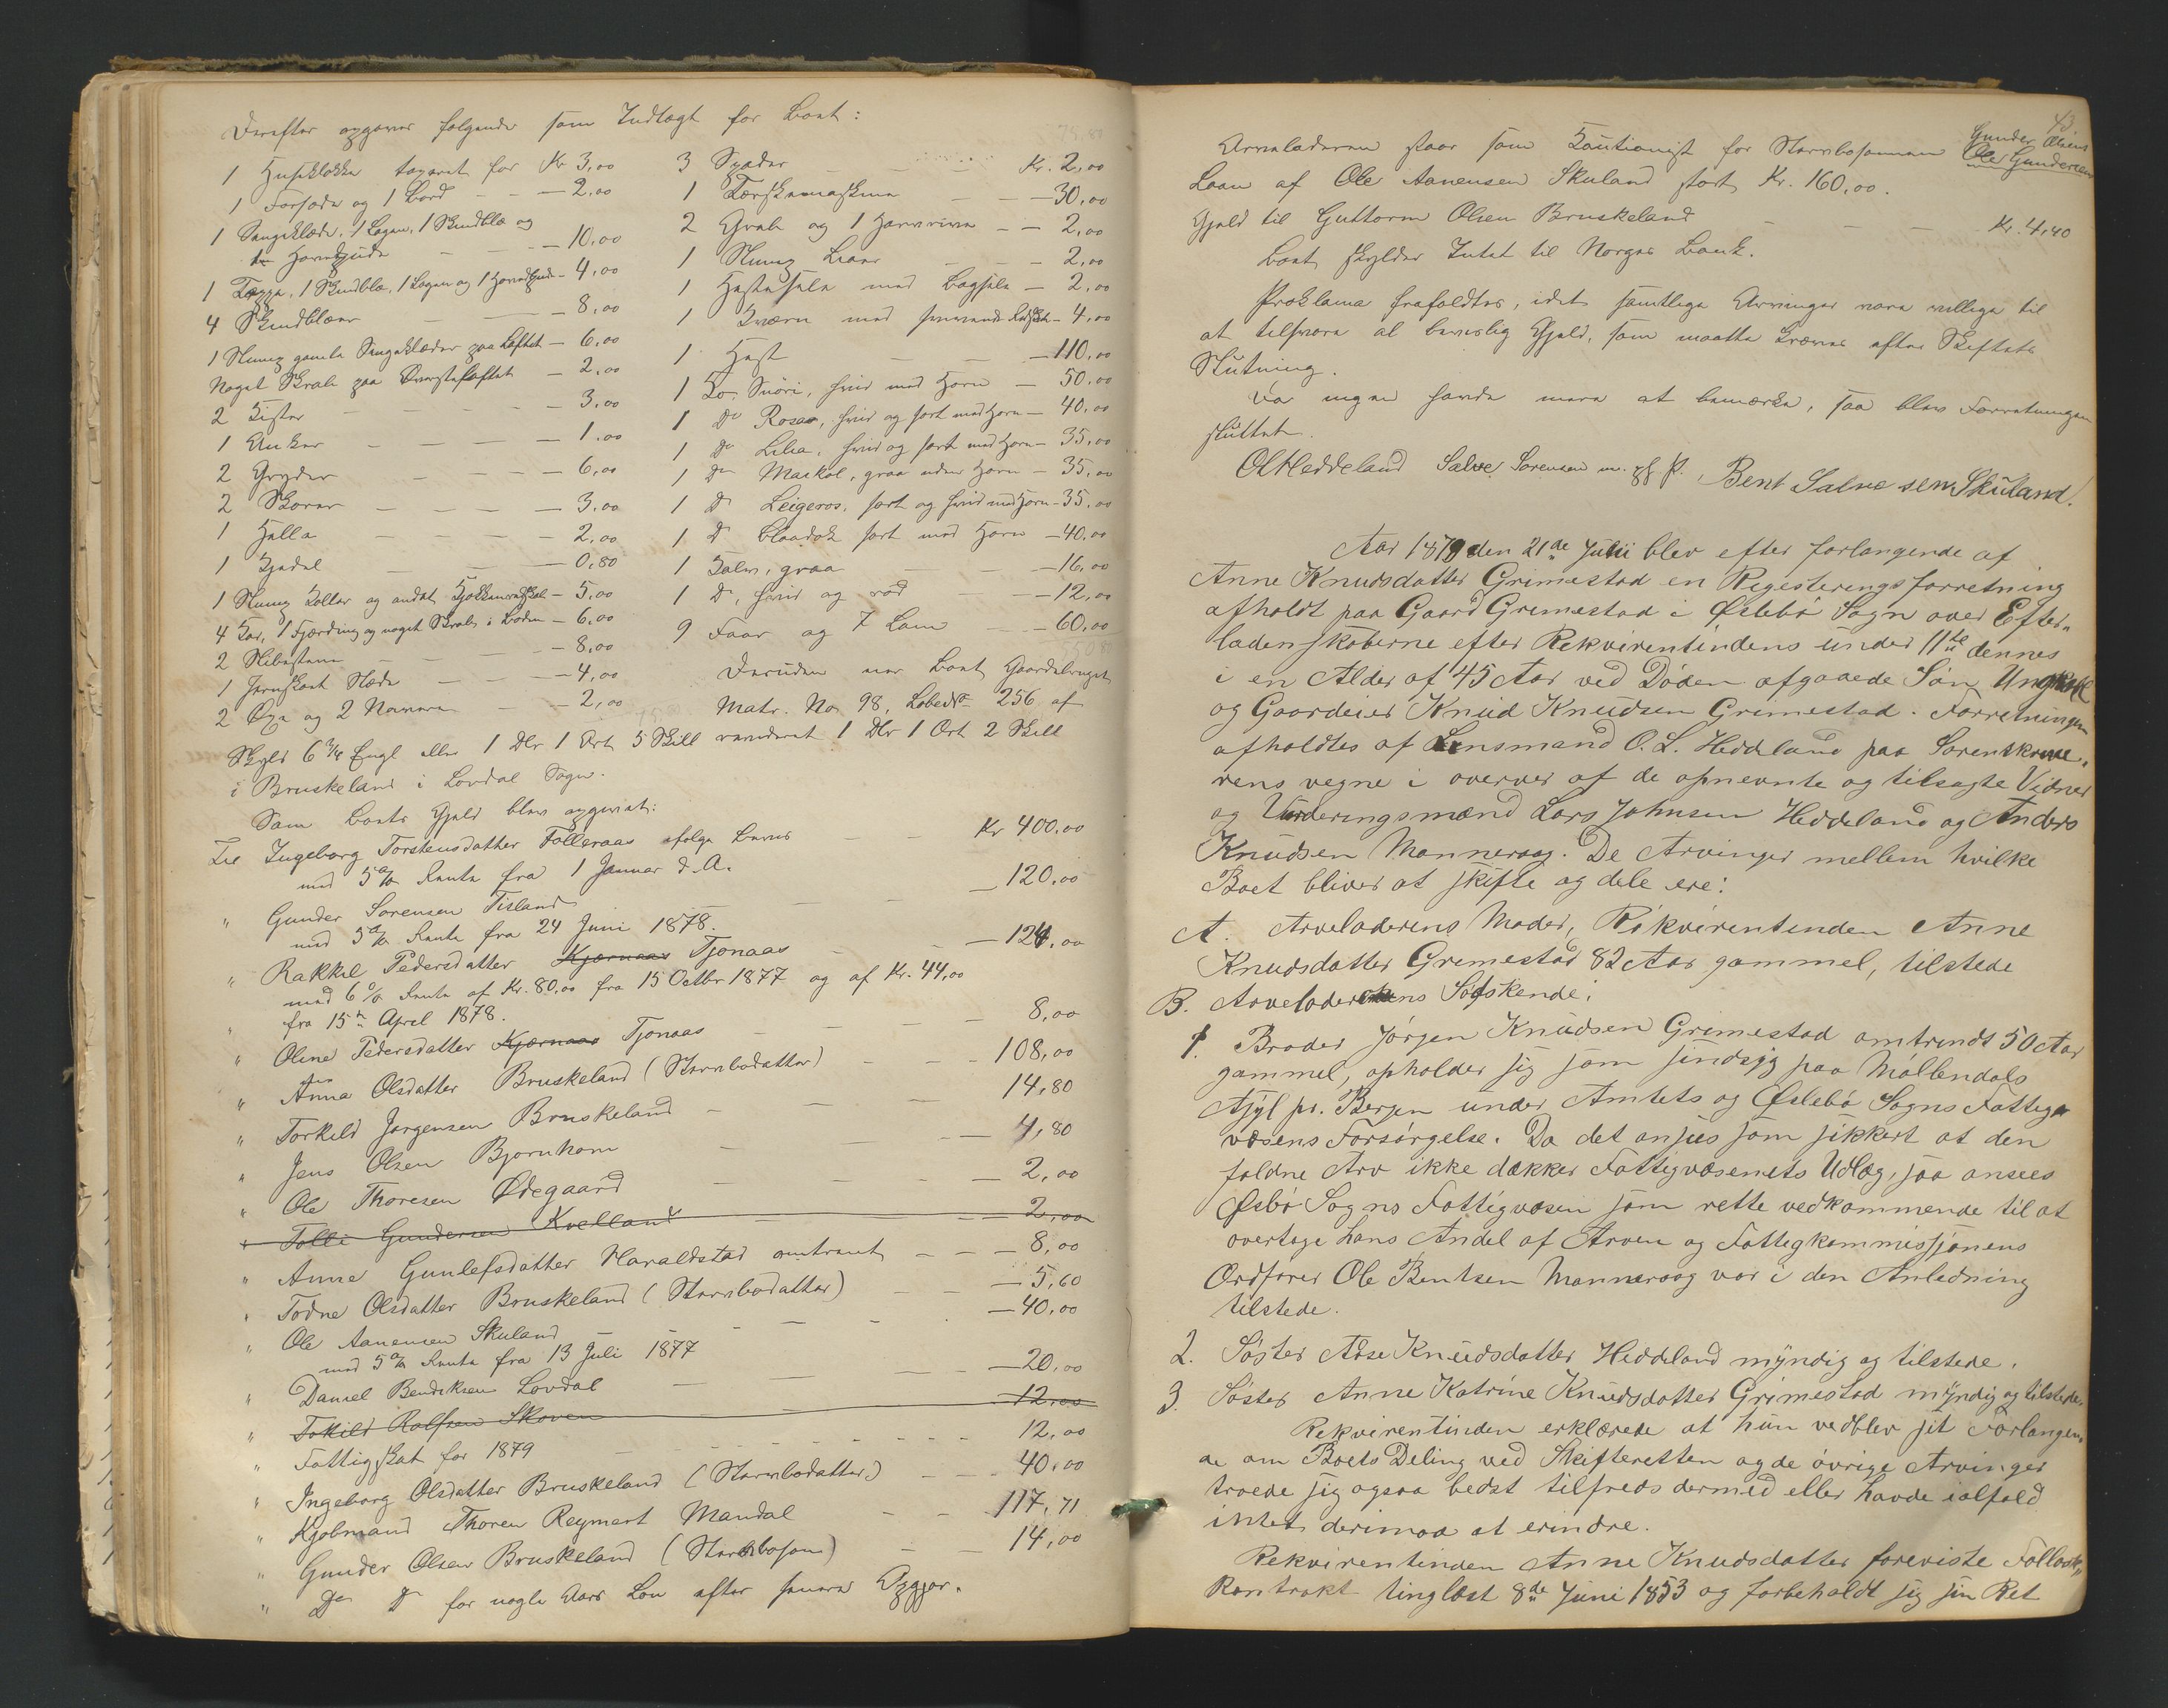 Derefter opgaves følgende som Indtægt for Boet:
1 Husklokke taxeret for Kr 3,00
1 Forsæde og 1 Bord — 2,00
1 Sengeklæde, 1 Lagen, 1 Skindblæ og
1 Hovedpude — 10,00
1 Teppe, 1 Skindblæ, 1 Lagen og 1 Hovedpude — 4,00
4 Skindblæer — 8,00
1 Slump gamle Sengeklæder paa Loftet — 6,00
Noget Skrab paa Øversteloftet — 2,00
2 Kister — 3,00
1 Anker — 1,00
2 Gryder — 6,00
2 — 3,00
1 Helle — 2,00
1 Kjedel — 0,80
1 Slump Koller og andet Kjøkkenredskab — 5,00
4 Kar, 1 Fjærding og noget Skrab i Boden — 6,00
2 — 8,00
1 Jernskoet Slæde — 4,00
2 Øxe og 2 Navere — 2,00
3 Spader Kr. 2,00
1 Tærskemaskine — 30,00
2 Greb og 1 Haverive — 2,00
1 Slump Liaer — 2,00
1 Hestesele med Bagsele — 2,00
1 Kværn med — 4,00
1 Hest — 110,00
1 Ko, Snöri, hvid med Horn — 50,00
1 Do Rosas, hvid og sort med Horn — 40,00
1 Do Lilia, hvid og sort med Horn — 35,00
1 Do Maikol, graa uden Horn — 35,00
1 Do Leigeros, sort og hvid med Horn — 35,00
1 Do Blaadok sort med Horn — 40,00
1 Kalv, graa — 16,00
1 Do, hvid og rød — 12,00
9 Faar og 7 Lam — 60,00
Desuden eier Boet Gaardebruget
Matr. No 98, Løbe No 256 af
Skyld 6 3/4 Engl eller 1 Dlr 1 Ort 5 Skill revideret 1 Dlr 1 Ort 2 Skill
i Bruskeland i Løvdal Sogn.
Som Boets Gjeld blev opgivet:
Til Ingeborg Torstensdatter Følleraas ifølge Bevis Kr 400,00
med 5% Rente fra 1 Januar d. A.
" Gunder Sørensen Tisland — 120,00
med 5% Rente fra 24 Juni 1878.
" Rakkel Pedersdatter Kjærnaas Tjønaas — 124,00
med 6% Rente af Kr. 80,00 fra 15 Octbr 1877 og af Kr. 44,00
" fra 15de April 1878.
" Oline Pedersdatter Kjærnaas Tjønaas — 8,00
" Anna Olsdatter Bruskeland (Stervbodatter) — 108,00
" Torkild Jørgensen Bruskeland — 14,80
" Jens Olsen Bjørnhom — 4,80
" Ole Thoresen Ødegaard — 2,00
" Tolli Gundersen Kvelland — 2,00
" Anne Gunlefsdatter Haraldstad omtrent — 8,00
" Todne Olsdatter Bruskeland (Stervbodatter) — 5,60
" Ole Aanensen Skuland — 40,00
med 5% Rente fra 13 Juli 1877
" Daniel Bendiksen Løvdal — 20,00
" Tokild Rolfsen Skoven — 12,00
" Fattigskat for 1879 — 12,00
" Ingeborg Olsdatter Bruskeland (Stervbodatter) — 40,00
" Kjøbmand Thoren Reymert Mandal — 117,71
" Gunder Olsen Bruskeland (Stervbosøn) — 14,00
" Do Do for nogle Aars Løn efter senere Opgjør.
43
Gunder Olsens
Arveladeren staar som Kautionist for Stervbosønnen Ole Gundersens
Laan af Ole Aanensen Skuland stort Kr. 160,00.
Gjeld til Guttorm Olsen Bruskeland — Kr. 4,40
Boet skylder Intet til Norges Bank.
Proklama frafaldtes, idet samtlige Arvinger vare villige til
at tilsvare al beviislig Gjeld, som maatte kræves efter Skiftets
Slutning.
Da ingen havde mere at bemærke, saa blev Forretningen
sluttet.
OLHeddeland Salve Sørensen m. p. P. Bent Salve sen Skuland.
Aar 1879 den 21de Juli blev efter forlangende af
Anne Knudsdatter Grimestad en Registeringsforretning
afholdt paa Gaard Grimestad i Øslebö Sogn over Efter-
ladenskaberne efter Rekvirentindens under 11te dennes
i en Alder af 45 Aar ved Döden afgaaede Sön, Ungkarl
og Gaardeier Knud Knudsen Grimestad. Forretningen
afholdtes af Lensmand O. L. Heddeland paa Sorenskrive-
rens vegne i overvær af de opnevnte og tilsagte Vidner
og Vurderingsmænd Lars Johnsen Heddeland og Anders
Knudsen Manneraag. De Arvinger mellem hvilke
Boet bliver at skifte og dele ere:
A. Arveladerens Moder, Rekvirentinden Anne
Knudsdatter Grimestad 82 Aar gammel, tilstede
B. Arveladerens Södskende:
1. Broder Jörgen Knudsen Grimestad omtrendt 50 Aar
gammel, opholder sig som sindsyg paa Möllendals
Asyl pr. Bergen under Amtets og Öslebö Sogns Fattig-
væsens Forsörgelse. Da det ansees som sikkert at den
faldne Arv ikke dækker Fattigvæsenets Udlæg, saa ansees
Øsbö Sogns Fattigvæsen som rette vedkommende til at
overtage hans Andel af Arven og Fattigkommissjonens
Ordförer Ole Bentsen Manneraag var i den Anledning
tilstede.
2. Söster Aase Knudsdatter Heddeland myndig og tilstede.
3. Söster Anne Katrine Knudsdatter Grimestad myndig og tilstede.
Rekvirentinden erklærede at hun vedblev sit Forlangen-
de om Boets Deling ved Skifteretten og de övrige Arvinger
troede sig ogsaa bedst tilfreds dermed eller havde ialfald
intet derimod at erindre.
Rekvirentinden Anne Knudsdatter foreviste Follaads-
kontrakt tinglæst 8de Juni 1853 og forbeholdt sig sin Ret